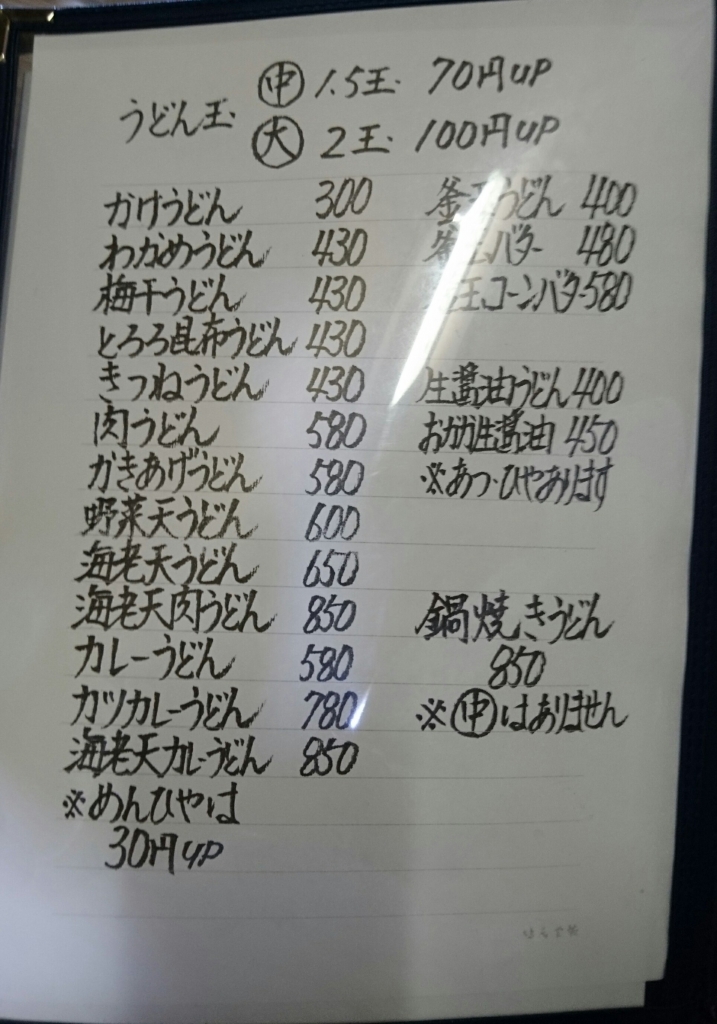 うどん玉
㊥ 1.5玉 70円UP
㊅ 2玉 100円UP
かけうどん 300
わかめうどん 430
梅干うどん 430
とろろ昆布うどん 430
きつねうどん 430
肉うどん 580
かきあげうどん 580
野菜天うどん 600
海老天うどん 650
海老天肉うどん 850
カレーうどん 580
カツカレーうどん 780
海老天カレーうどん 850
※めんひやは
30円UP
釜玉うどん 400
釜玉バター 480
玉コーンバター 580
生醤油うどん 400
おかか生醤油 450
※あつ・ひやあります
鍋焼きうどん
850
※㊥はありません